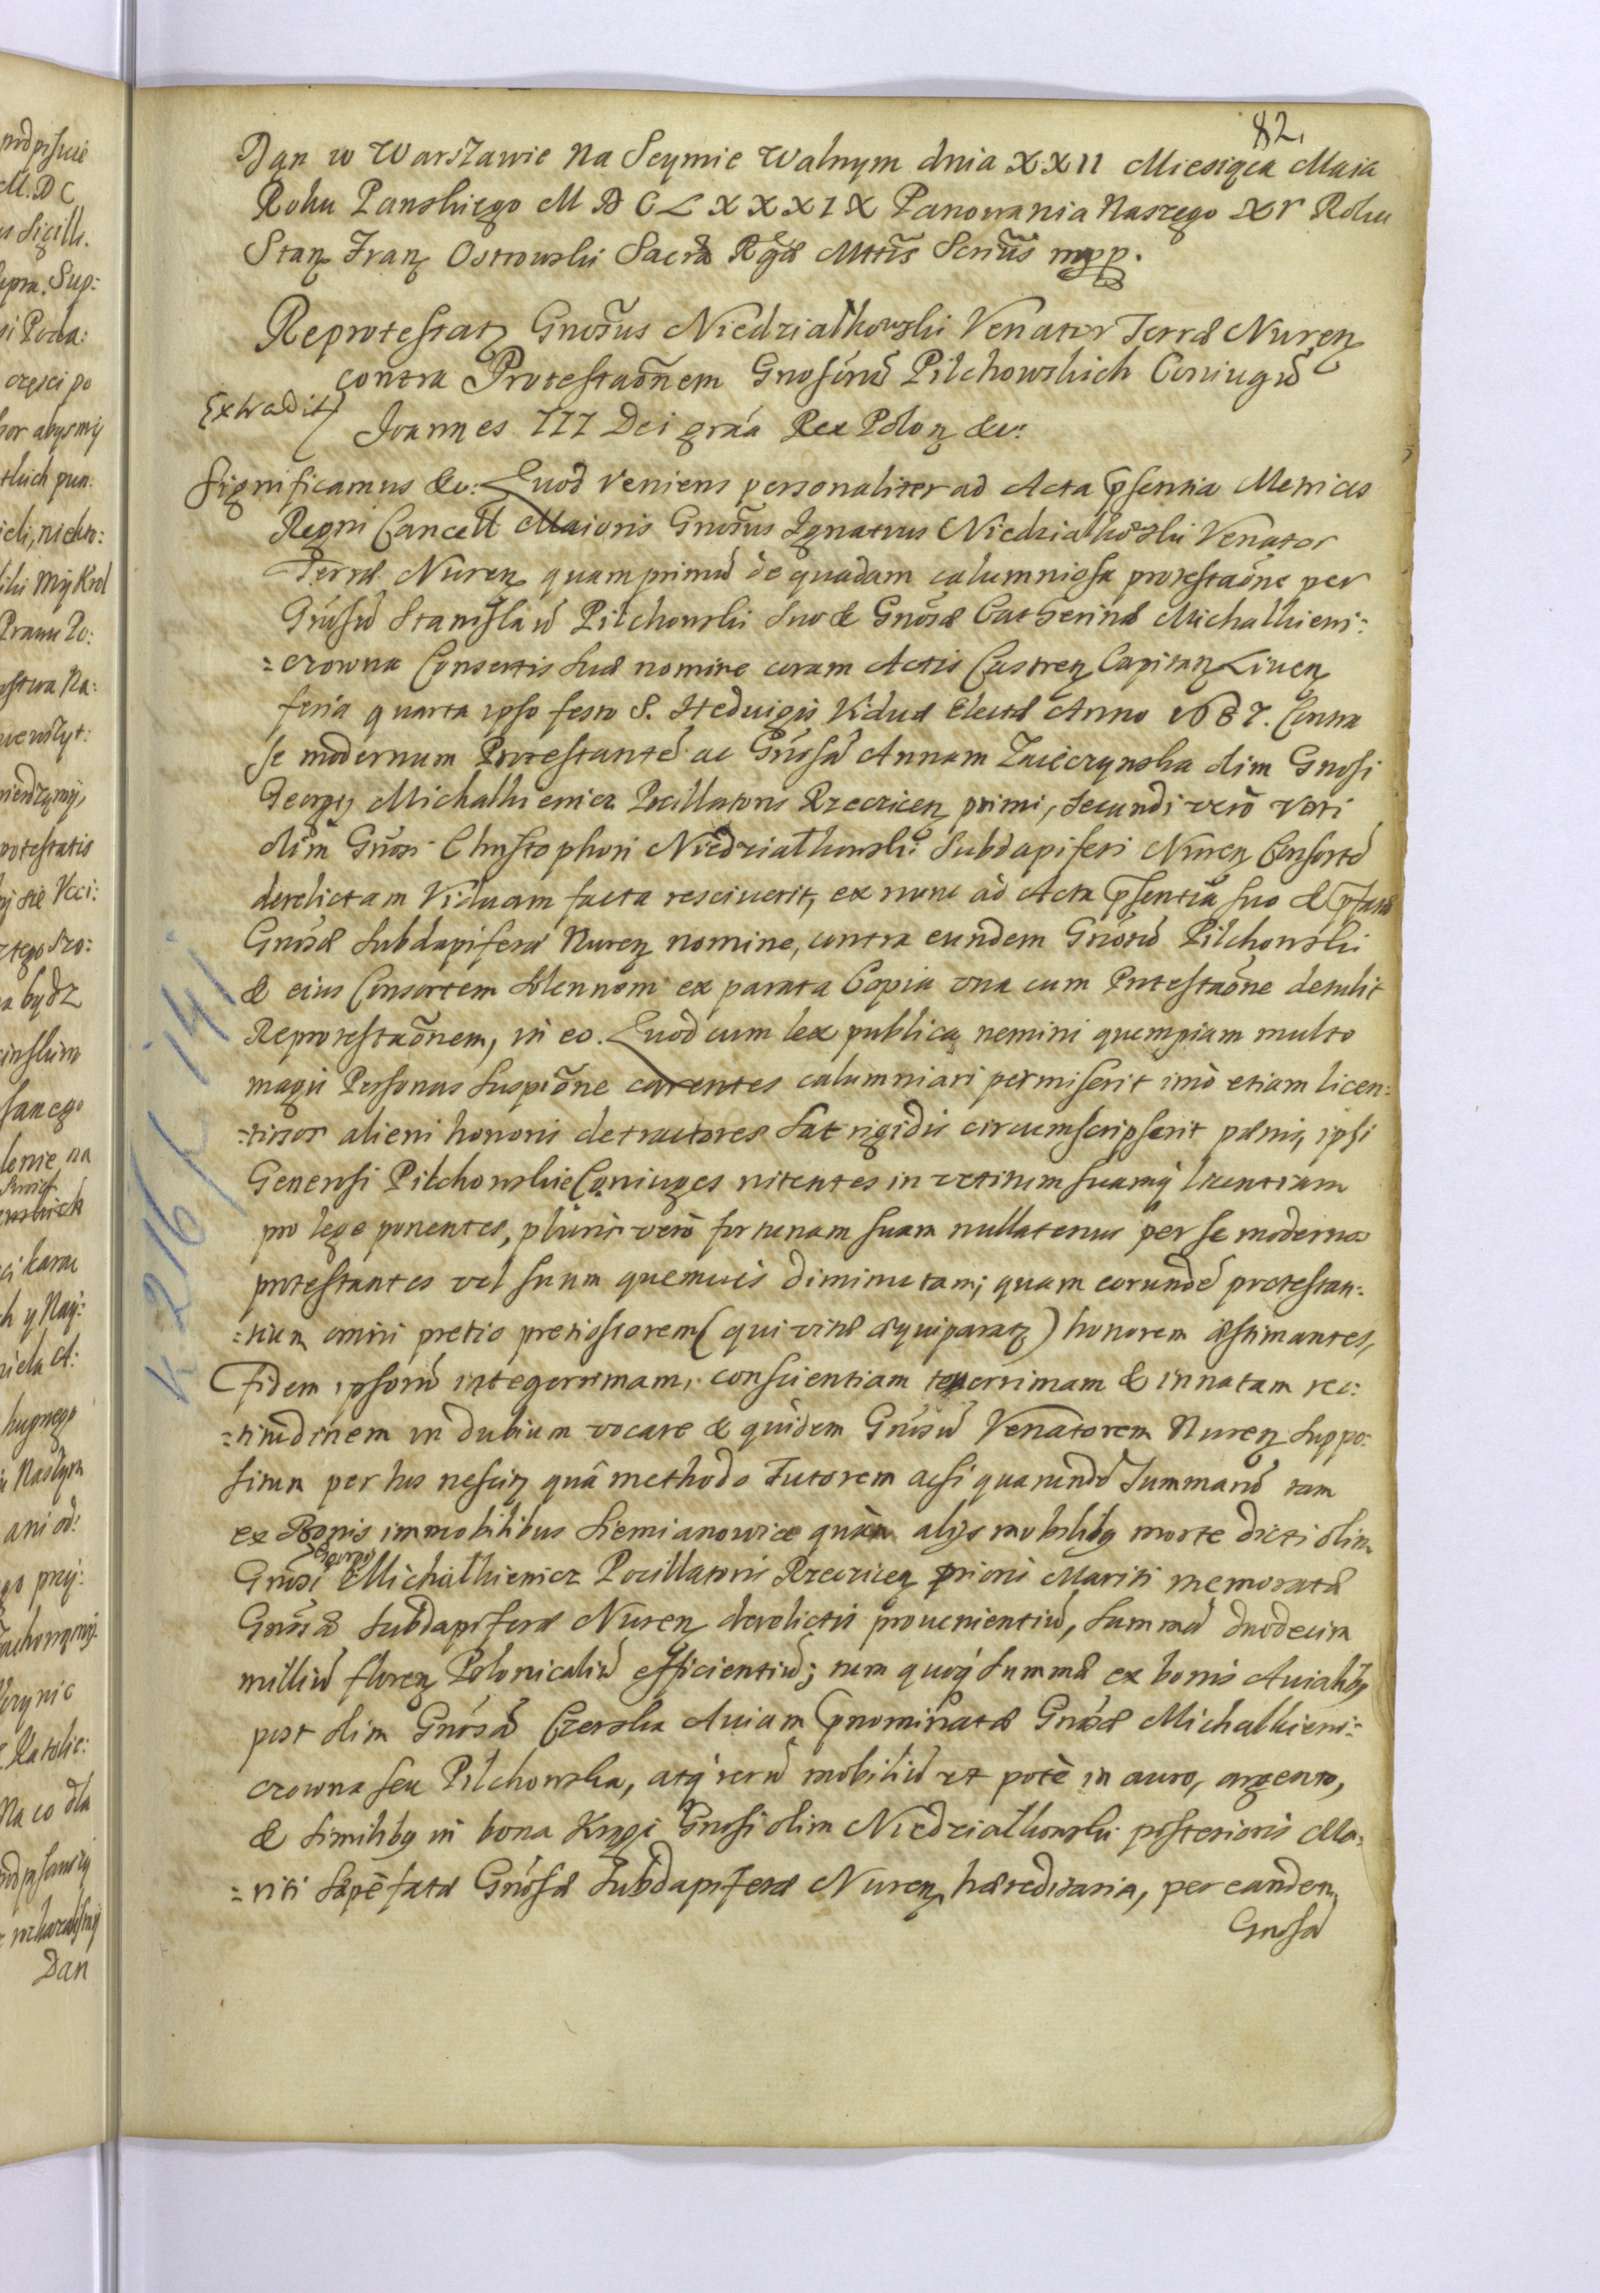 82.
Dan w Warszawie na Seymie Walnym dnia XXII Miesiąca Maia
Roku Panskiego MDCLXXXIX Panowania Naszego XV Roku
Stan Fran Ostrowski Sacrӕ Rgӕ Mttis Scrius mpp.
Reprotestat Gnosus Niedziałkowski Venator Terrӕ Nuren
contra Protestaonem Gnosoru Pilchowskich Coniugu
Extradit
Joannes III Dei gra Rex Polon &c:
Significamus &c: Quod veniens personaliter ad Acta psentia Metrices
Regni Cancell Maioris Gnosus Ignatius Niedziałkowski Venator
Terrӕ Nuren quamprimu de quadam calumniosa protestaone per
Gnosu Stanislau Pilchowski suo & Gnosӕ Catherinӕ Michałkiewi:
:czowna Consortis suӕ nomine coram Actis Castren Capitan Liven
feria quarta ipso festo S. Hedvigis Viduӕ Electӕ Anno 1687. Contra
se modernum Protestante ac Gnosa Annam Zwierzynska olim Gnosi
Georgy Michałkiewicz Pocillatoris Rzeczicen primi, secundi vero vori
olim Gnosi Christophori Niedziałkowski Subdapiferi Nuren Consorte
derelictam Viduam facta resciverit, ex nunc ad Acta psentia suo & pfatӕ
Gnosӕ Subdapiferӕ Nuren nomine, contra eundem Gnosu Pilchowski
& eius Consortem solennem ex parata Copia una cum Protestaone detulit
Reprotestaonem, in eo. Quod cum lex publica nemini quempiam multo
magis Personas suspione carentes calumniari permiserit imo etiam licen:
:tiosos alieni honoris detractores sat rigidis circumscripserit pӕnis, ipsi
Generosi Pilchowskie Coniuges nitentes in vetitum suamq licentiam
pro lege ponentes, pluris vero fortunam suam nullatenus per se modernos
protestantes vel suum quemvis diminutam; quam eorunde protestan:
:tium omni pretio pretiosiorem (qui vitӕ ӕquiparat) honorem ӕstimantes,
Fidem ipsoru integerrimam, conscientiam tenerrimam & innatam rec:
:titudinem in dubium vocare & quidem Gnosu Venatorem Nuren suppo:
situm per hos nescit quâ methodo Tutorem acsi quarunda Summaru tam
ex Bonis immobilibus Siemianowice quam alys mobilibg morte dicti olim
Georgy
Gnosi Michałkiewicz Pocillatoris Rzeczicen prioris Mariti memoratӕ
Gnosӕ Subdapiferӕ Nuren derelictis provenientiu, summa duodecim
milliu floren Polonicaliu efficientiu; tum quoq summӕ ex bonis Avialibg
post olim Gnosa Czerska Aviam pnominatӕ Gnosӕ Michałkiewi:
czowna seu Pilchowska, atq reru mobiliu ut potè in auro, argento,
& similibg in bona Knpi Gnosi olim Niedziałkowski posterioris Ma:
:riti sӕpèfatӕ Gnosӕ Subdapiferӕ Nuren hӕreditaria, per eandem
Gnosa
K 216/c 141